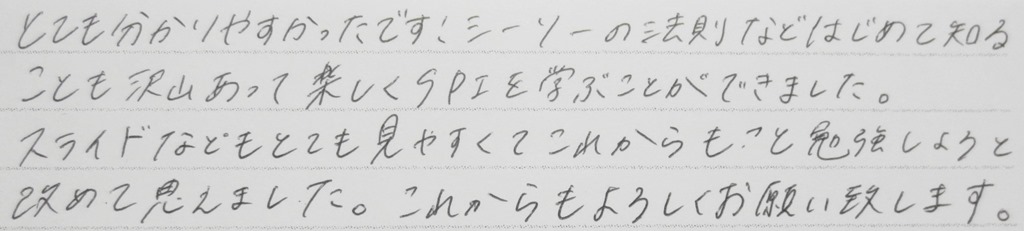 とても分かりやすかったです!シーソーの法則などはじめて知る
ことも沢山あって楽しくSPIを学ぶことができました。
スライドなどもとても見やすくてこれからもっと勉強しようと
改めて思えました。これからもよろしくお願い致します。